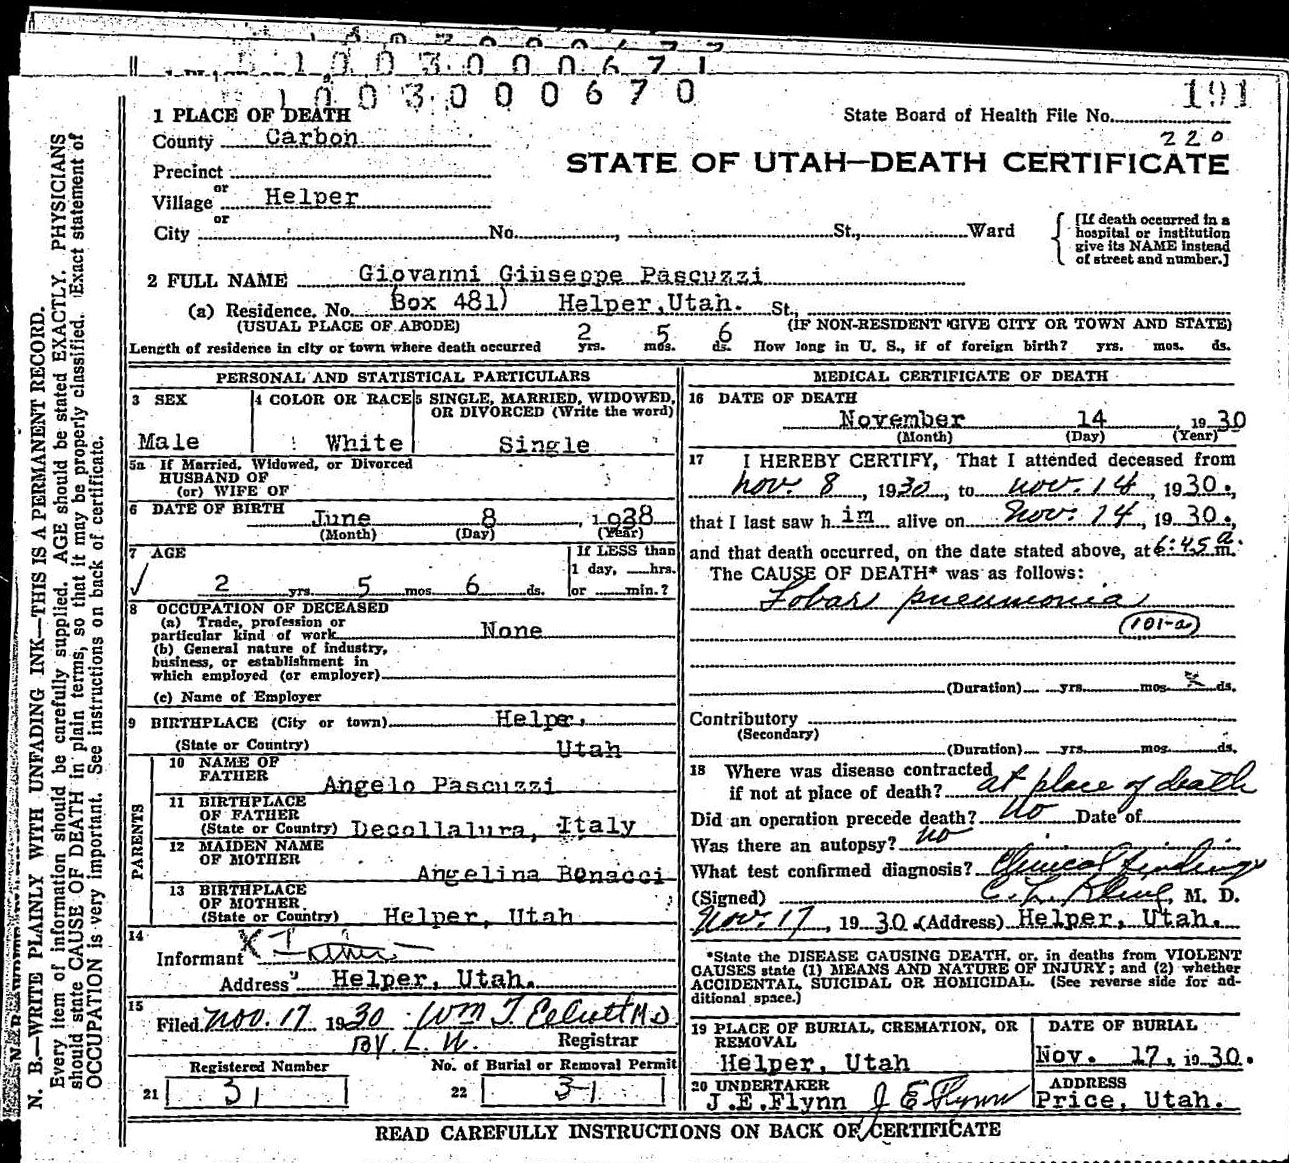 1003000671
1003000670
191
1 PLACE OF DEATH
State Board of Health File No.
County Carbon
220
STATE OF UTAH—DEATH CERTIFICATE
Precinct
or
Village Helper
or
City No. , St., Ward
[If death occurred in a hospital or institution give its NAME instead of street and number.]
2 FULL NAME Giovanni Giuseppe Pascuzzi
(a) Residence. No. (Box 481) Helper, Utah. St.,
(USUAL PLACE OF ABODE) (IF NON-RESIDENT GIVE CITY OR TOWN AND STATE)
Length of residence in city or town where death occurred 2 yrs. 5 mos. 6 ds. How long in U. S., if of foreign birth? yrs. mos. ds.
PERSONAL AND STATISTICAL PARTICULARS
3 SEX
Male
4 COLOR OR RACE
White
5 SINGLE, MARRIED, WIDOWED, OR DIVORCED (Write the word)
Single
5a If Married, Widowed, or Divorced
HUSBAND OF
(or) WIFE OF
6 DATE OF BIRTH June 8, 1928
(Month) (Day) (Year)
7 AGE
2 yrs. 5 mos. 6 ds.
If LESS than
1 day, hrs.
or min.?
8 OCCUPATION OF DECEASED
(a) Trade, profession or
particular kind of work None
(b) General nature of industry,
business, or establishment in
which employed (or employer)
(c) Name of Employer
9 BIRTHPLACE (City or town) Helper,
(State or Country) Utah
PARENTS
10 NAME OF
FATHER Angelo Pascuzzi
11 BIRTHPLACE
OF FATHER
(State or Country) Decollalura, Italy
12 MAIDEN NAME
OF MOTHER Angelina Bonacci
13 BIRTHPLACE
OF MOTHER
(State or Country) Helper, Utah
14
Informant
Address Helper, Utah.
15
Filed Nov. 17 1930 Wm T. M D
By. L. W. Registrar
Registered Number
21 31
No. of Burial or Removal Permit
22 31
MEDICAL CERTIFICATE OF DEATH
16 DATE OF DEATH
November 14, 1930
(Month) (Day) (Year)
17 I HEREBY CERTIFY, That I attended deceased from
Nov. 8, 1930, to Nov. 14, 1930.,
that I last saw him alive on Nov. 14, 1930.,
and that death occurred, on the date stated above, at 6:45 a.m.
The CAUSE OF DEATH* was as follows:
Lobar pneumonia
(101-a)
(Duration) yrs. mos. ds.
Contributory
(Secondary)
(Duration) yrs. mos. ds.
18 Where was disease contracted
if not at place of death? at place of death
Did an operation precede death? No Date of
Was there an autopsy? no
What test confirmed diagnosis? Clinical findings
(Signed) C. L. , M. D.
Nov. 17, 1930. (Address) Helper, Utah.
*State the DISEASE CAUSING DEATH, or, in deaths from VIOLENT
CAUSES state (1) MEANS AND NATURE OF INJURY; and (2) whether
ACCIDENTAL, SUICIDAL OR HOMICIDAL. (See reverse side for ad-
ditional space.)
19 PLACE OF BURIAL, CREMATION, OR
REMOVAL
Helper, Utah
DATE OF BURIAL
Nov. 17, 1930.
20 UNDERTAKER
J.E.Flynn J E Flynn
ADDRESS
Price, Utah.
READ CAREFULLY INSTRUCTIONS ON BACK OF CERTIFICATE
N. B.—WRITE PLAINLY WITH UNFADING INK—THIS IS A PERMANENT RECORD.
Every item of information should be carefully supplied. AGE should be stated EXACTLY. PHYSICIANS
should state CAUSE OF DEATH in plain terms, so that it may be properly classified. Exact statement of
OCCUPATION is very important. See instructions on back of certificate.